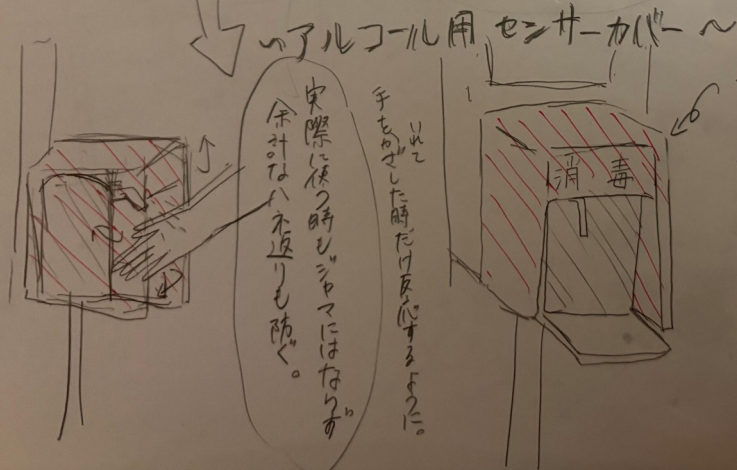 ~アルコール用センサーカバー~
消毒
いれて
手をかざした時だけ反応するように。
実際に使う時もジャマにはならず
余計なハネ返りも防ぐ。